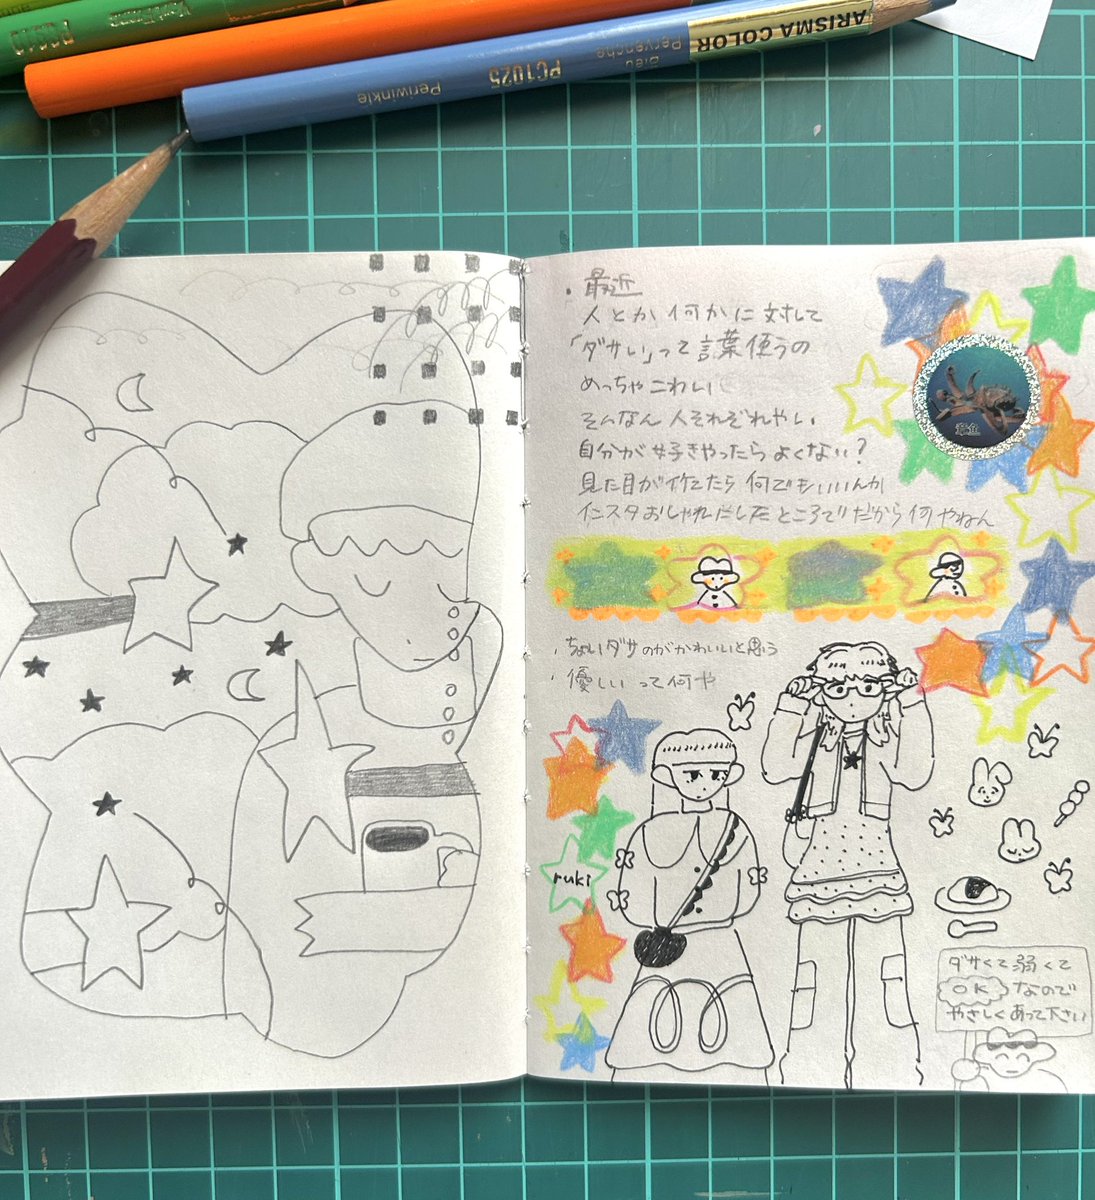 Periwinkle
PC1025
Bleu
Pervenche
ARISMA COLOR
・最近
人とか何かに対して
「ダサい」って言葉使うの
めっちゃこわい
そんなん人それぞれやし
自分が好きやったらよくない?
見た目がイケてたら何でもいいんか
インスタおしゃれにしたところでだから何やねん
章鱼
・ちょいダサのがかわいいと思う
・優しいって何や
ruki
ダサくて弱くて
OKなので
やさしくあって下さい